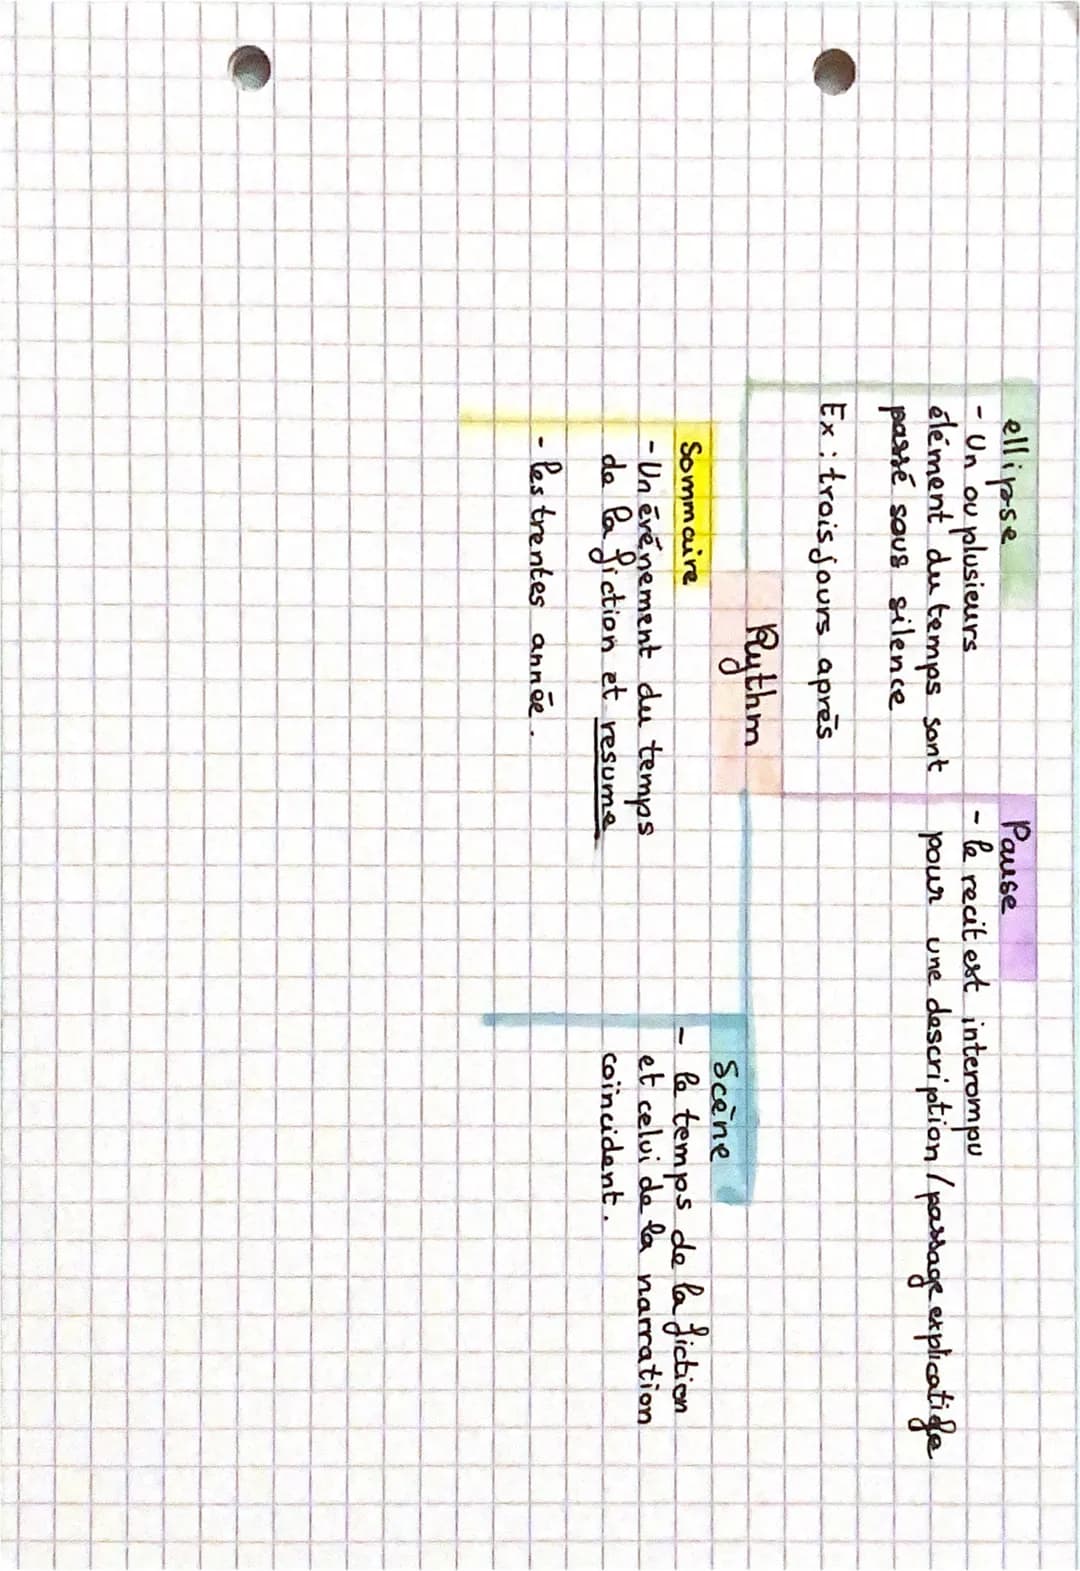 ellipse
- Un ou plusieurs
élément du temps sont
passé sous silence
Ex : trois jours après
Pause
- le recit est interompu
pour une description / passage explicatife
Rythm
Sommaire
- Un événement du temps
de la fiction et resume
- les trentes année.
Scène
- le temps de la fiction
et celui de la narration
coïncident.